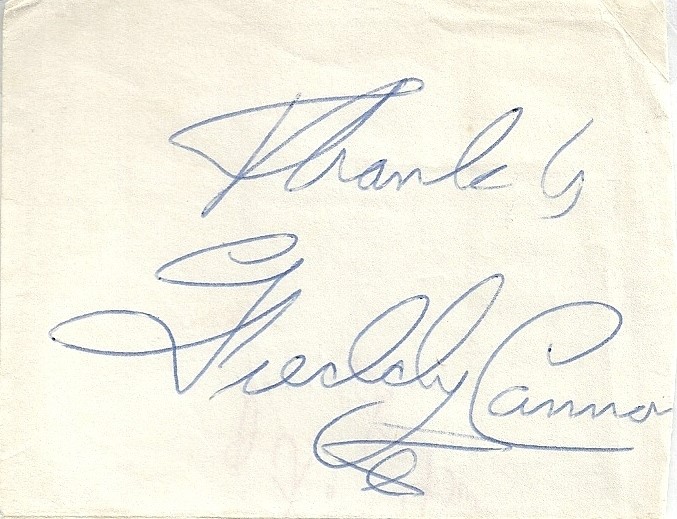 Thank
Freddy Canno